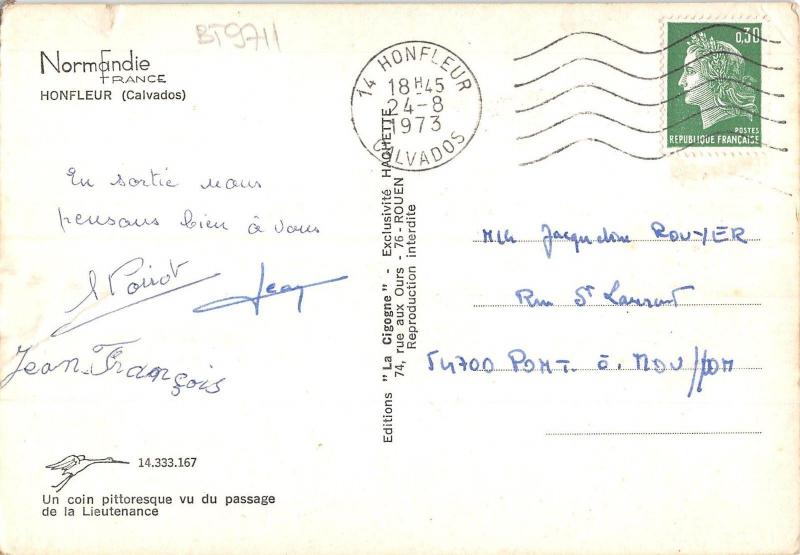 BT9711
Normandie
FRANCE
HONFLEUR (Calvados)
En sortie nous
pensons bien à vous
Jean
Jean-François
14.333.167
Un coin pittoresque vu du passage
de la Lieutenance
Editions "La Cigogne" - Exclusivité HACHETTE
74, rue aux Ours - 76-ROUEN
Reproduction interdite
14 HONFLEUR
18H45
24-8
1973
CALVADOS
0,30
POSTES
REPUBLIQUE FRANÇAISE
Mlle Jacqueline ROUYER
Rue St Laurent
54700 PONT. à. MOUSSON